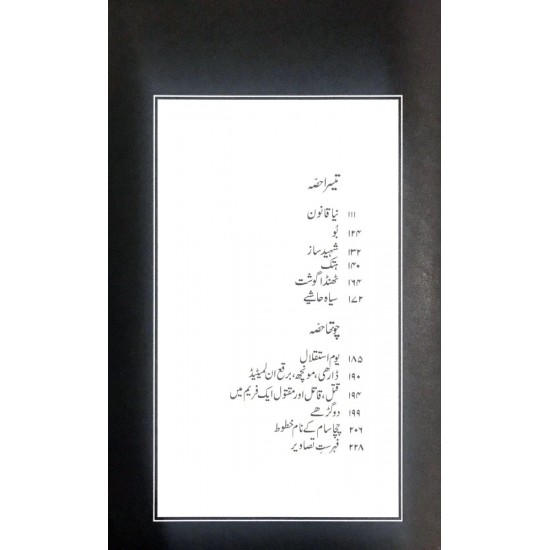 تیسرا حصّہ
نیا قانون ۱۱۱
بُو ۱۲۴
شہید ساز ۱۳۲
ہتک ۱۴۰
ٹھنڈا گوشت ۱۶۴
سیاہ حاشیے ۱۷۲
چوتھا حصّہ
یومِ استقلال ۱۸۵
ڈارھی، مونچھ، برقع ان لمیٹیڈ ۱۹۰
قتل، قاتل اور مقتول ایک فریم میں ۱۹۴
دو گڑھے ۱۹۹
چچا سام کے نام خطوط ۲۰۶
فہرستِ تصاویر ۲۲۸